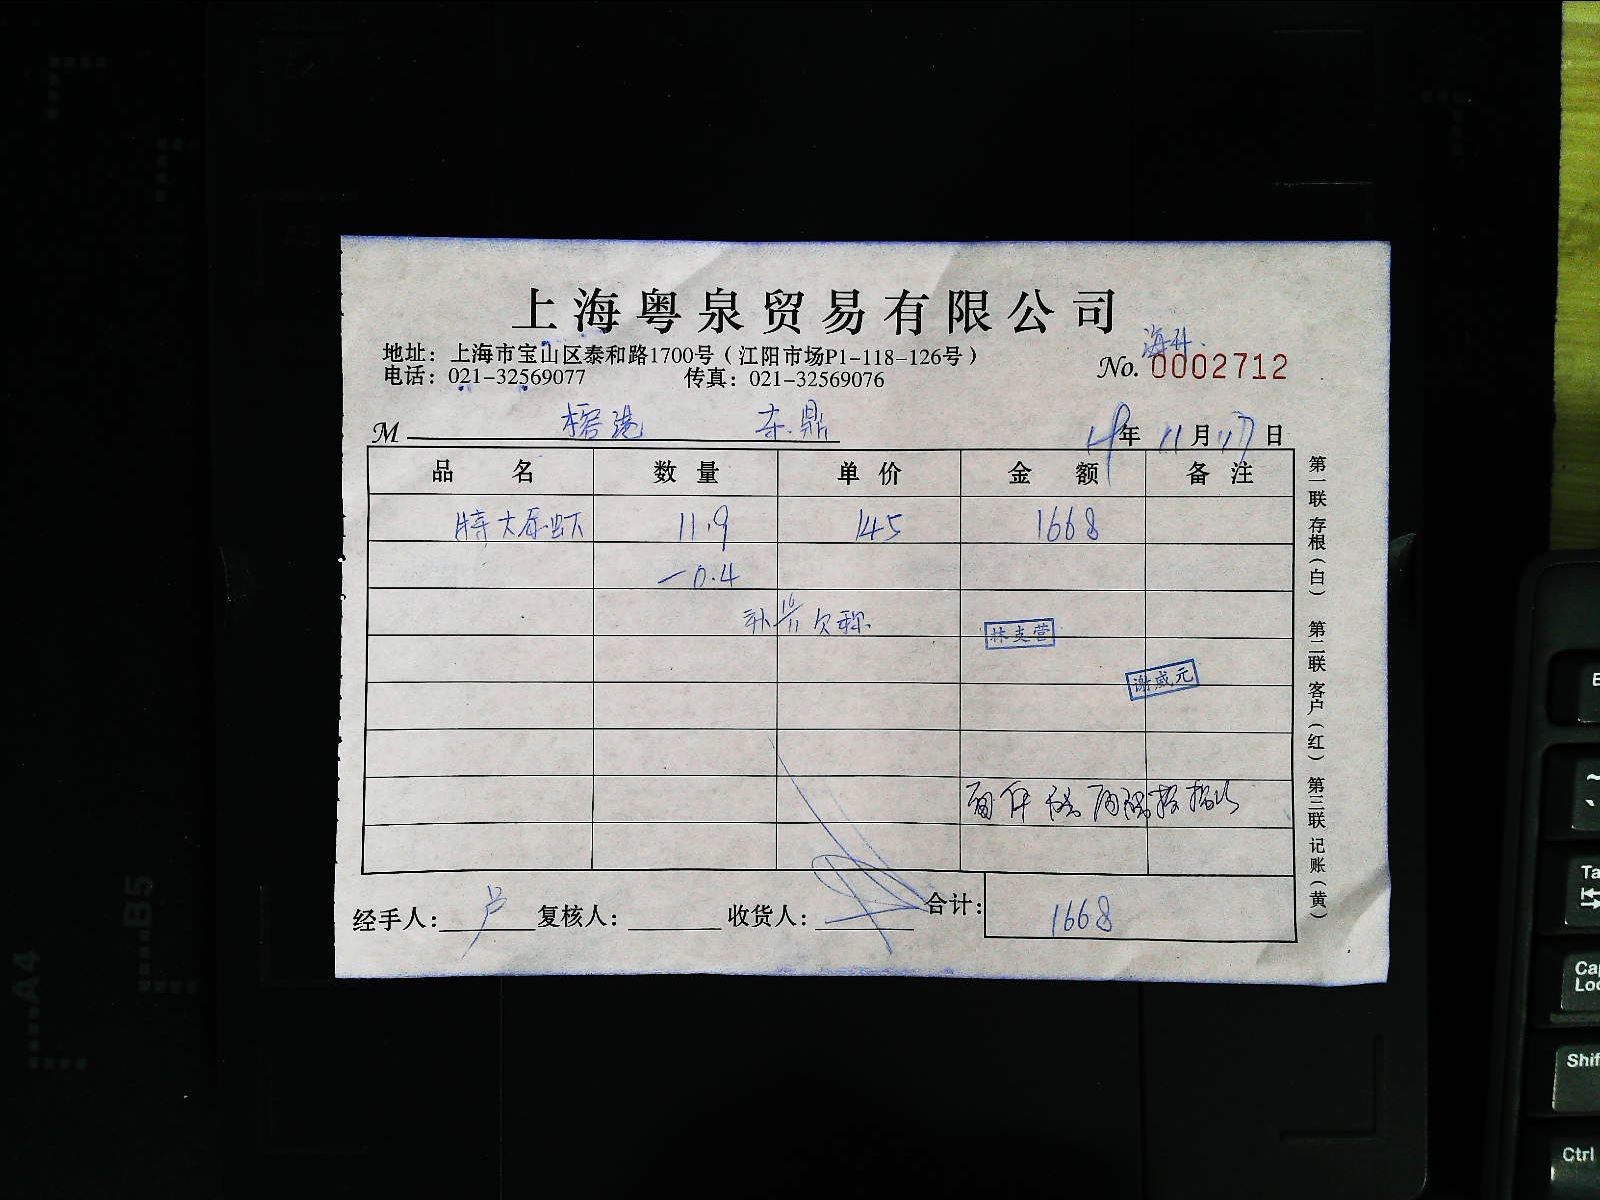 上海粤泉贸易有限公司
海升
地址：上海市宝山区泰和路1700号（江阳市场P1-118-126号）
No. 0002712
电话：021-32569077 传真：021-32569076
M 榕港 东鼎 年 11月17日
品名 数量 单价 金额 备注
特大基虾 11.9 145 1668
-0.4
补 16/11 欠称
林支营
谢威元
经手人：卢 复核人： 收货人： 合计： 1668
第一联存根（白） 第二联客户（红） 第三联记账（黄）
B5
A4
Shif
Ctrl